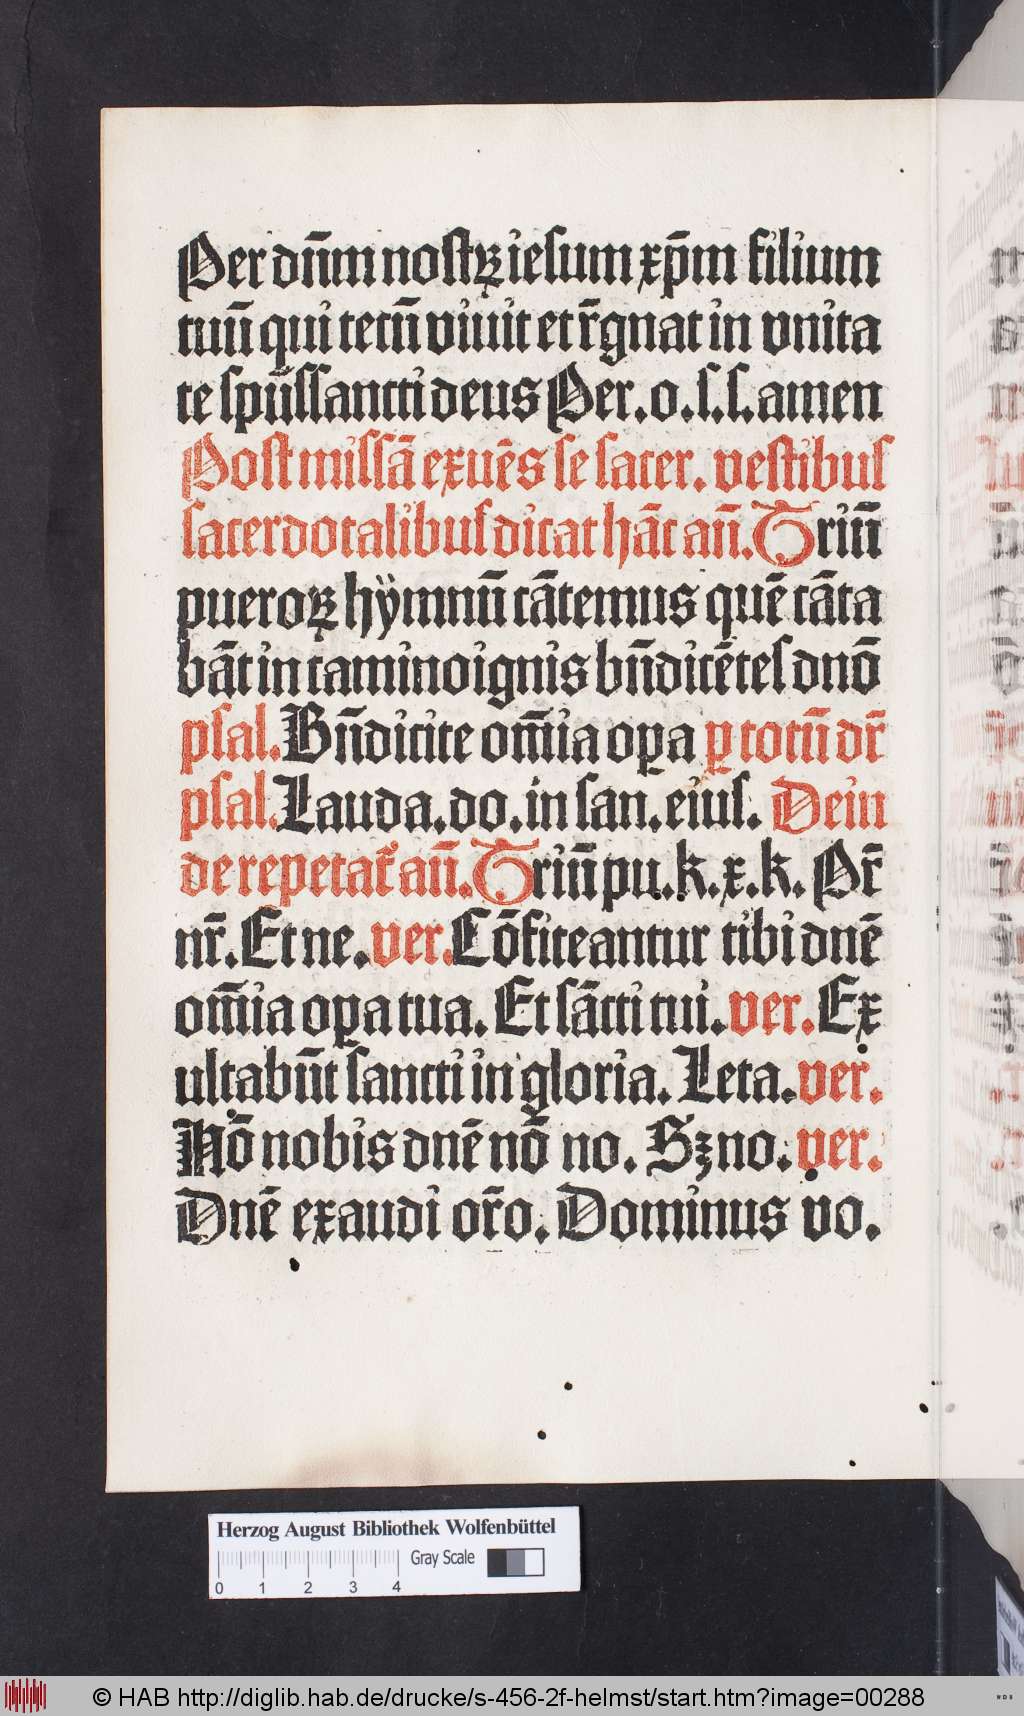 Per dn̄m nostꝝ iesum xp̄m filium
tuū qui tecū viuit et r̄gnat in vnita
te spūssancti deus Per. o. s. s. amen
Post missā exuēs se sacer. vestibus
sacerdotalibus dicat hāc an̄. Triū
pueroꝝ hÿmnū cātemus quē cāta
bāt in camino ignis bn̄dicētes dnō
psal. Bn̄dicite om̄ia oꝑa ꝑ totū dr̄
psal. Lauda. do. in san. eius. Dein
de repetat᷑ an̄. Triū pu. k. x. k. Pr̄
nr̄. Et ne. ver. Cōfiteantur tibi dnē
om̄ia oꝑa tua. Et sācti tui. ver. Ex
ultabūt sancti in gloria. Leta. ver.
Nō nobis dnē nō no. Sꝫ no. ver.
Dnē exaudi or̄o. Dominus vo.
Herzog August Bibliothek Wolfenbüttel
Gray Scale
0 1 2 3 4
© HAB http://diglib.hab.de/drucke/s-456-2f-helmst/start.htm?image=00288